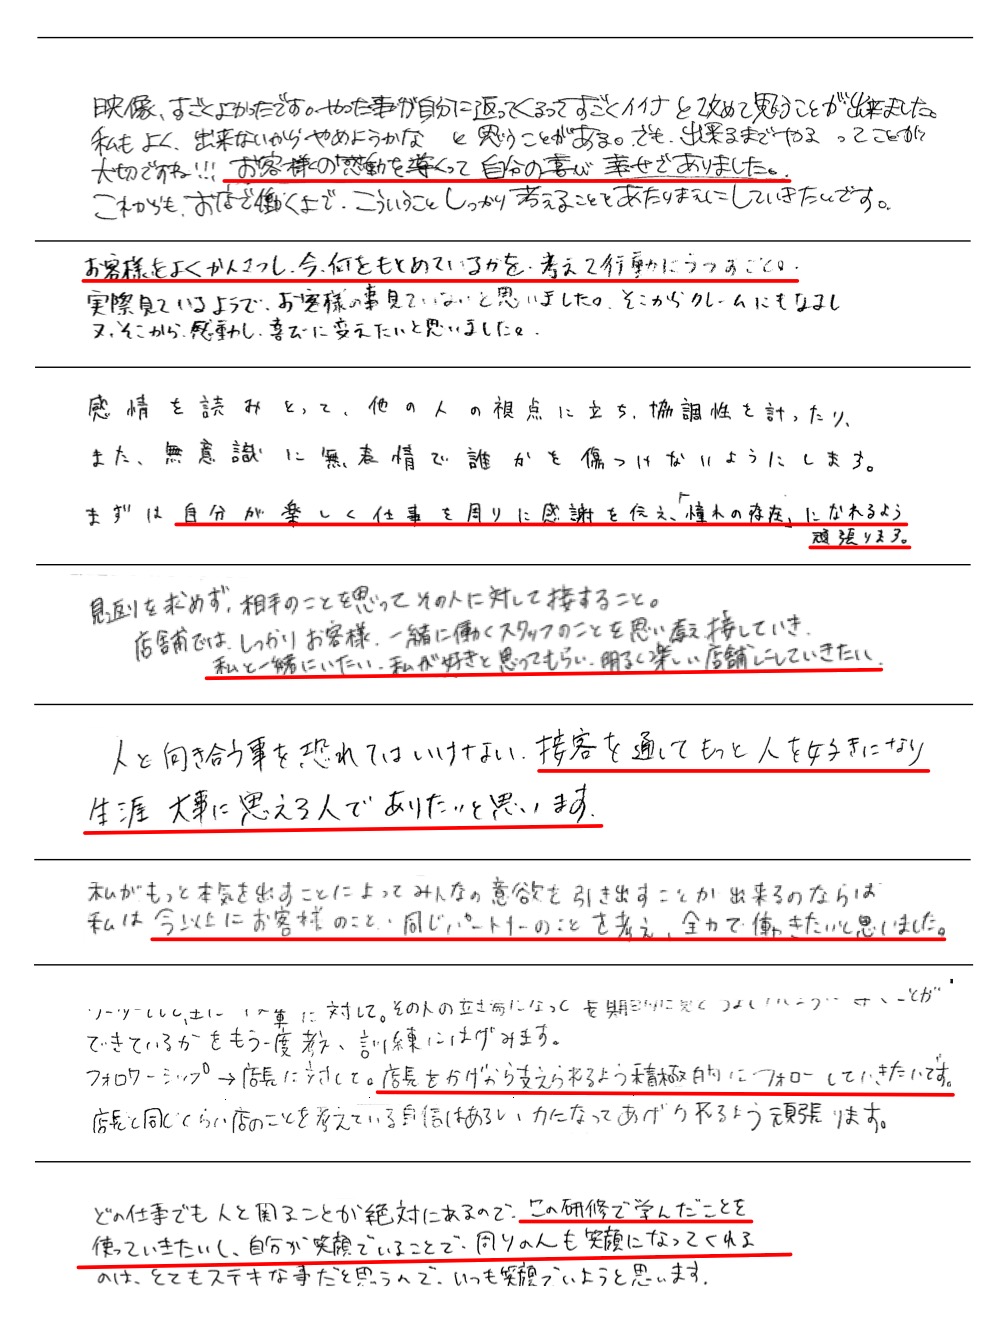 映像、すごくよかったです。やった事が自分に返ってくるってすごくイイナと改めて思うことが出来ました。
私もよく、出来ないからやめようかな と思うことがある。でも、出来るまでやる ってことが
大切ですね!!! お客様の感動を導くって自分の喜び 幸せでありました。
これからも、お店で働く上で、こういうことしっかり考えることをあたりまえにしていきたいです。
お客様をよくかんさつし、今、何をもとめているかを、考えて行動にうつすこと。
実際見ているようで、お客様の事見ていないと思いました。そこからクレームにもなるし
又、そこから、感動し、喜びに変えたいと思いました。
感情を読みとって、他の人の視点に立ち、協調性を計ったり、
また、無意識に無表情で誰かを傷つけないようにします。
まずは自分が楽しく仕事を周りに感謝を伝え、「憧れの存在」になれるよう
頑張ります。
見返りを求めず、相手のことを思ってその人に対して接すること。
店舗では、しっかりお客様、一緒に働くスタッフのことを思い考え接していき、
私と一緒にいたい、私が好きと思ってもらい、明るく楽しい店舗にしていきたい。
人と向き合う事を恐れてはいけない、接客を通してもっと人を好きになり
生涯 大事に思える人でありたいと思います。
私がもっと本気を出すことによってみんなの意欲を引き出すことが出来るのならば
私は今以上にお客様のこと、同じパートナーのことを考え、全力で働きたいと思いました。
に対して。その人の立場になって長期的に見て
できているかをもう一度考え、訓練にはげみます。
フォロワーシップ→店長に対して。店長をかげから支えられるよう積極的にフォローしていきたいです。
店長と同じくらい店のことを考えている自信はあるし、力になってあげれるよう頑張ります。
どの仕事でも人と関ることが絶対にあるので、この研修で学んだことを
使っていきたいし、自分が笑顔でいることで、周りの人も笑顔になってくれる
のは、とてもステキな事だと思うので、いつも笑顔でいようと思います。